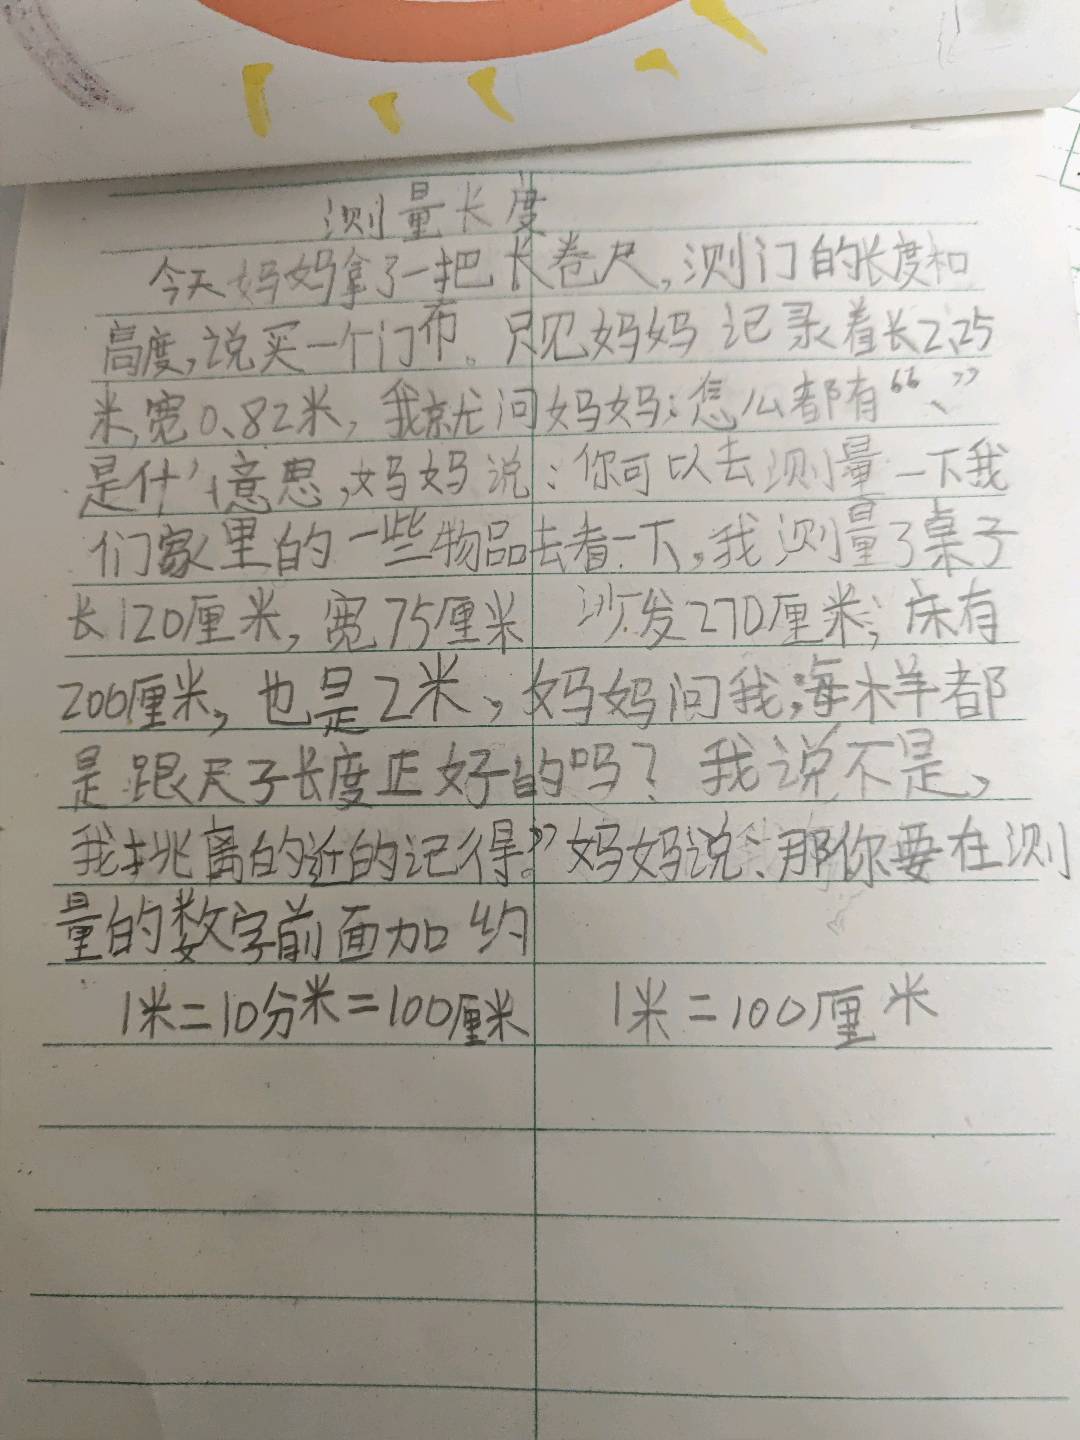 测量长度
今天妈妈拿了一把长卷尺,测门的长度和
高度,说买一个门布。只见妈妈记录着长2、25
米,宽0、82米,我就问妈妈:怎么都有“、”
是什么意思,妈妈说:你可以去测量一下我
们家里的一些物品去看一下,我测量了桌子
长120厘米,宽75厘米 沙发270厘米;床有
200厘米,也是2米,妈妈问我;每样都
是跟尺子长度正好的吗?我说不是,
我挑离的近的记得。”妈妈说:那你要在测
量的数字前面加约
1米=10分米=100厘米 1米=100厘米